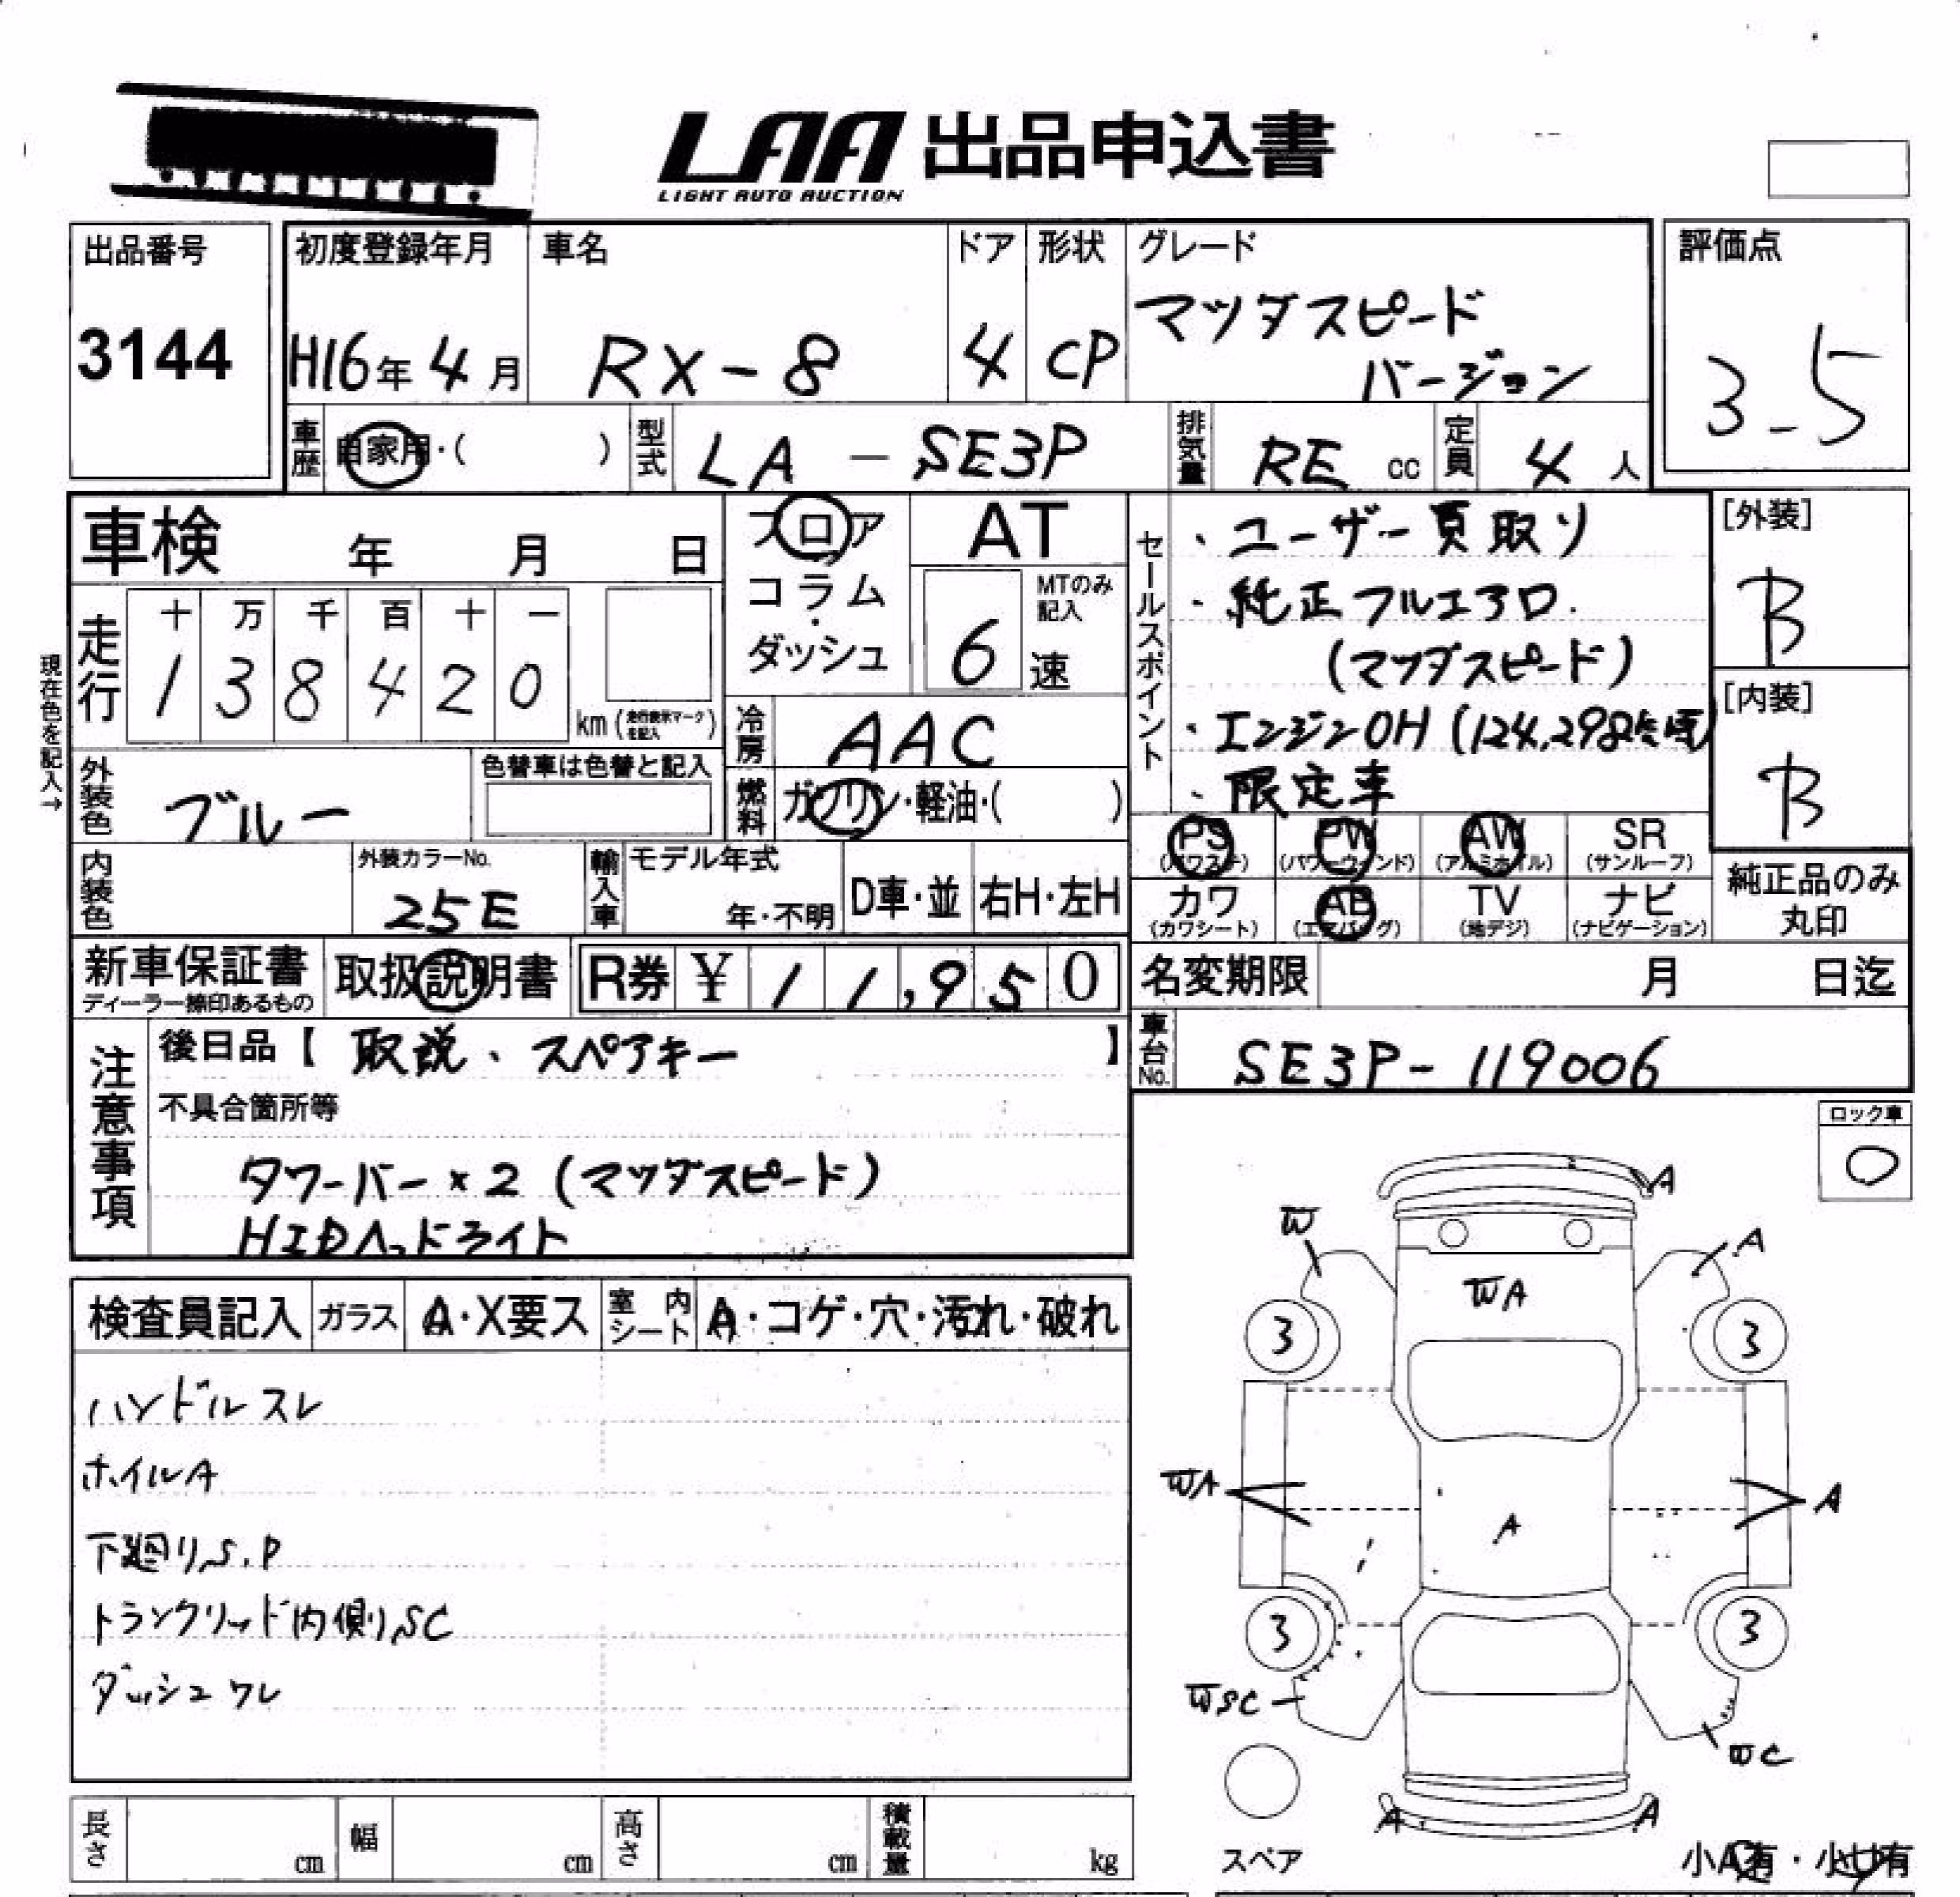 LAA 出品申込書
LIGHT AUTO AUCTION
出品番号
3144
初度登録年月
H16年4月
車名
RX-8
ドア
4
形状
CP
グレード
マツダスピード
バージョン
評価点
3.5
車歴
自家用・( )
型式
LA-SE3P
排気量
RE cc
定員
4人
車検 年 月 日
フロア
コラム・
ダッシュ
AT
MTのみ
記入
6速
セールスポイント
・ユーザー買取り
・純正フルエアロ.
(マツダスピード)
・エンジンOH (124,298
・限定車
[外装]
B
[内装]
B
現在色を記入→
走行
十 万 千 百 十 一
1 3 8 4 2 0
km (走行表示マークを記入)
冷房
AAC
外装色
ブルー
色替車は色替と記入
燃料
ガソリン・軽油・( )
PS
(パワステ)
PW
(パワーウィンド)
AW
(アルミホイル)
SR
(サンルーフ)
カワ
(カワシート)
AB
(エアバッグ)
TV
(地デジ)
ナビ
(ナビゲーション)
純正品のみ
丸印
内装色
外装カラーNo.
25E
輸入車
モデル年式
年・不明
D車・並
右H・左H
新車保証書
ディーラー捺印あるもの
取扱説明書
R券 ¥ 11,950
名変期限 月 日迄
車台No.
SE3P-119006
注意事項
後日品【 取説、スペアキー 】
不具合箇所等
タワーバー×2 (マツダスピード)
HIDヘッドライト
ロック車
O
検査員記入
ガラス
A・X要ス
室内シート
A・コゲ・穴・汚れ・破れ
ハンドルスレ
ホイルA
下廻りS.P
トランクリッド内側りSC
ダッシュワレ
A
W
A
WA
3
3
WA
A
A
3
3
WSC
WC
A
A
スペア
小A有・小U有
長さ cm
幅 cm
高さ cm
積載量 kg